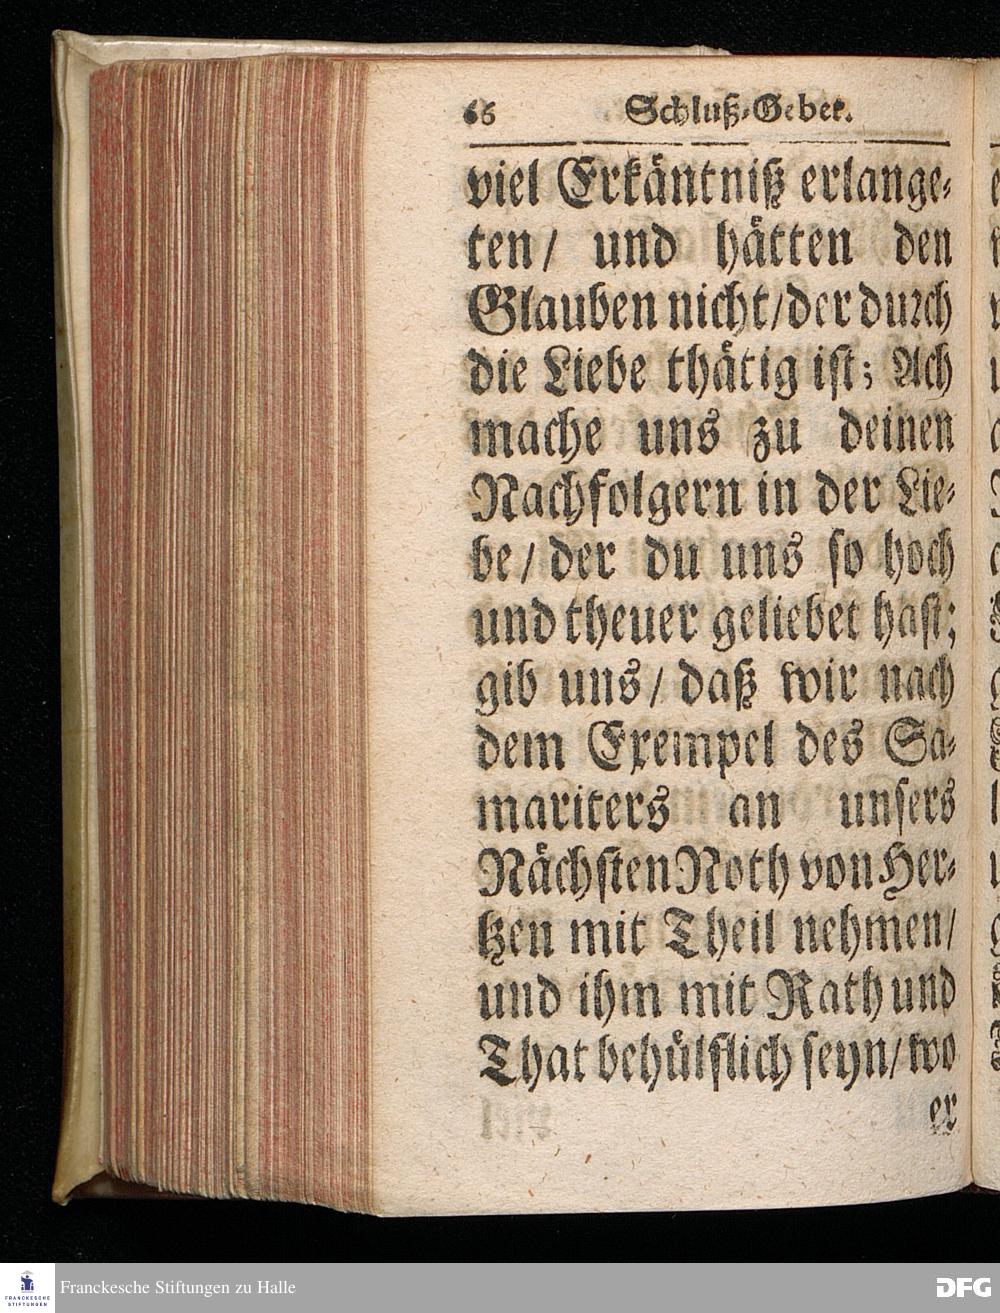 66 Schluß-Gebet.
viel Erkäntniß erlange-
ten/ und hätten den
Glauben nicht/der durch
die Liebe thätig ist; Ach
mache uns zu deinen
Nachfolgern in der Lie-
be/ der du uns so hoch
und theuer geliebet hast;
gib uns/ daß wir nach
dem Exempel des Sa-
mariters an unsers
Nächsten Noth von Her-
tzen mit Theil nehmen/
und ihm mit Rath und
That behülflich seyn/ wo
er
FRANCKESCHE
STIFTUNGEN
Franckesche Stiftungen zu Halle
DFG